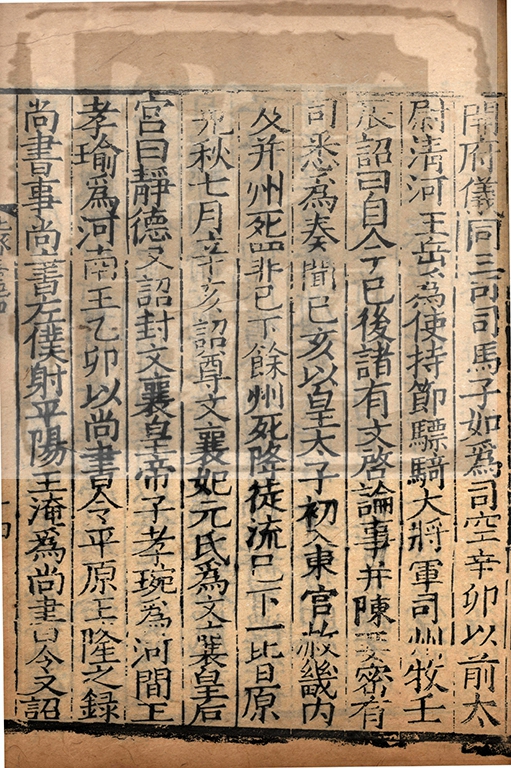 開府儀同三司司馬子如爲司空辛卯以前太
尉清河王岳爲使持節驃騎大將軍司州牧壬
辰詔曰自今已後諸有文啓論事并陳要密有
司悉爲奏聞己亥以皇太子初入東宮赦畿内
及并州死罪已下餘州死降徒流已下一皆原
免秋七月辛亥詔尊文襄妃元氏爲文襄皇后
宮曰靜德又詔封文襄皇帝子孝琬爲河間王
孝瑜爲河南王乙卯以尚書令平原王隆之錄
尚書事尚書左僕射平陽王淹爲尚書令又詔